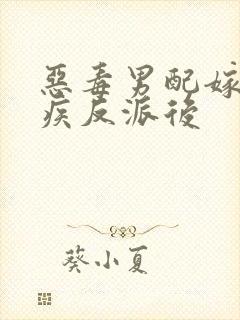 惡毒男配嫁
疾反派後
葵小夏